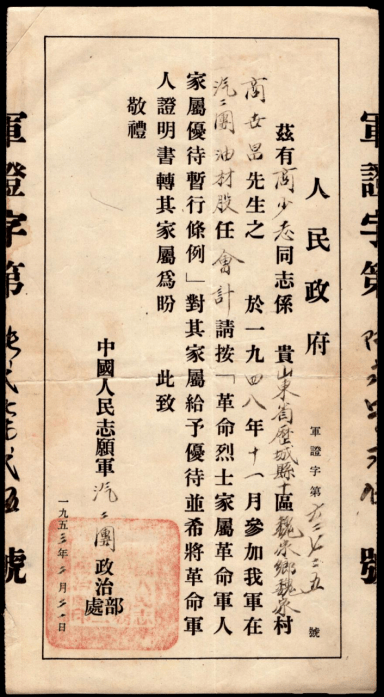 軍證字第
號
人民政府
軍證字第六二七二五號
茲有商少志同志係 貴山東省歷城縣十區魏家鄉魏家村
商世昌先生之 於一九四八年十一月參加我軍在
汽二團油材股任會計請按「革命烈士家屬革命軍人
家屬優待暫行條例」對其家屬給予優待並希將革命軍
人證明書轉其家屬爲盼 此致
敬禮
中國人民志願軍汽二團政治部
處
一九五三年二月二一日
軍證字第
號